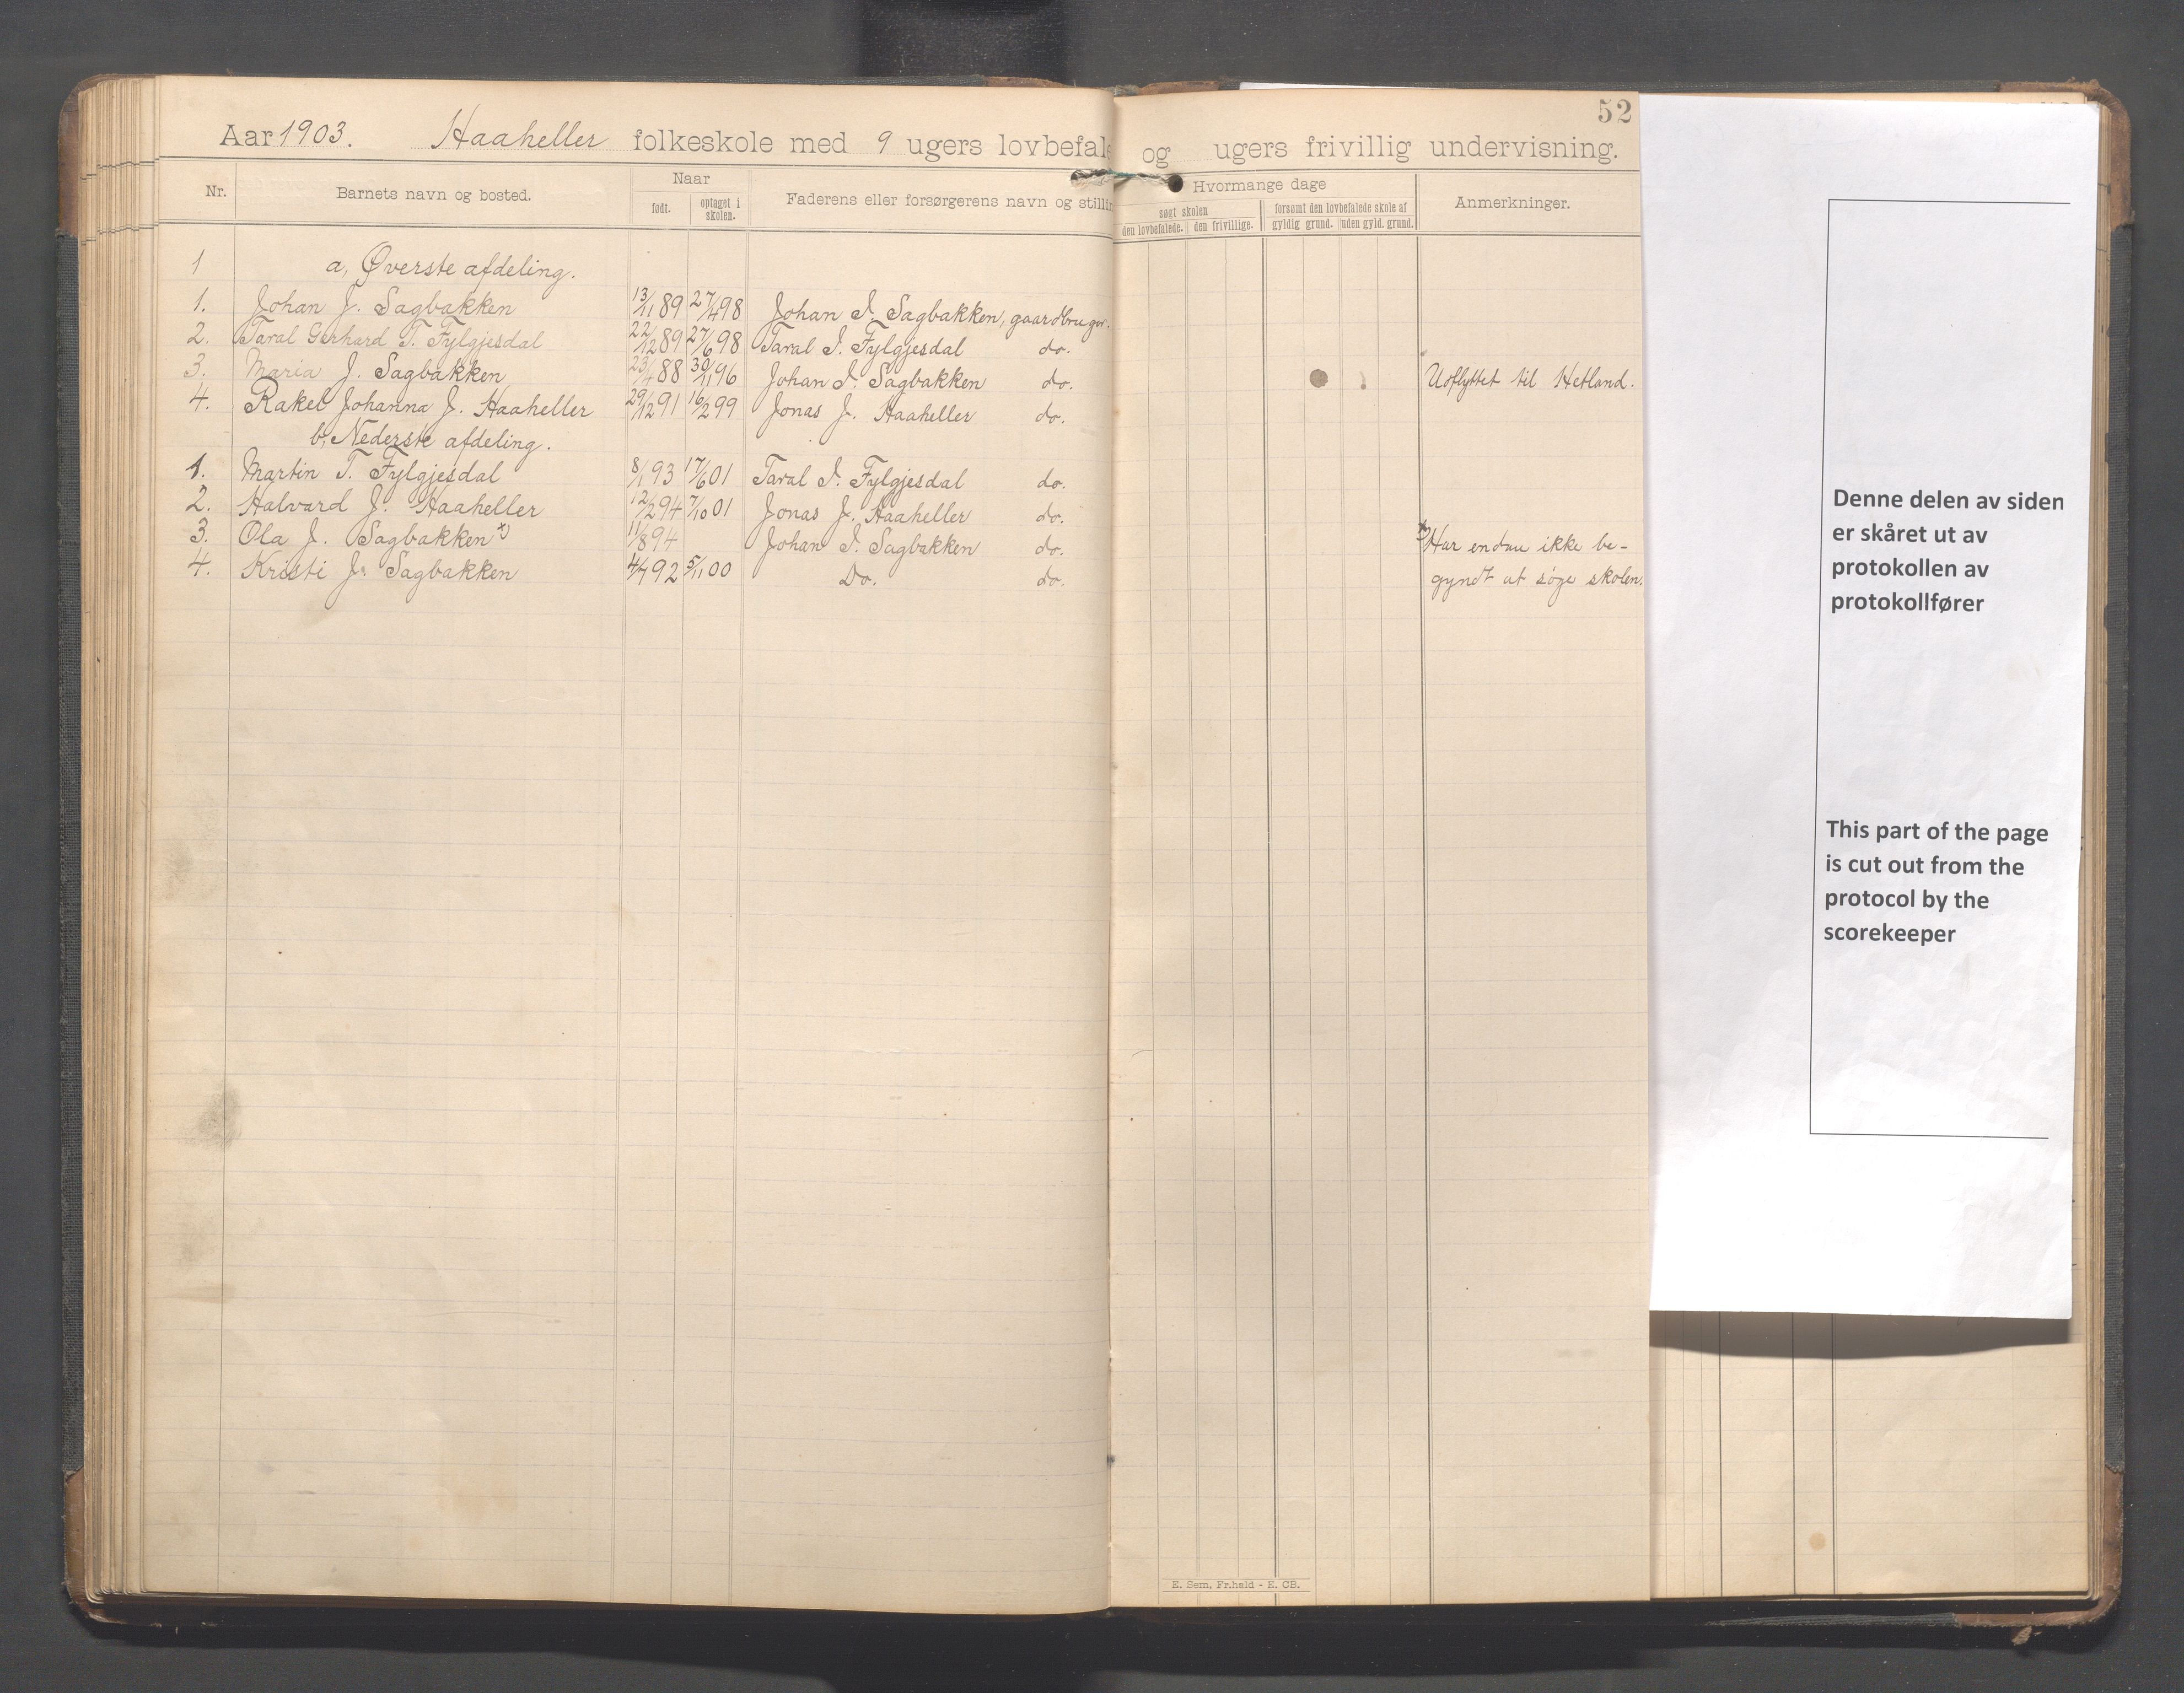 52
Aar 1903. Haaheller folkeskole med 9 ugers lovbefale og ugers frivillig undervisning.
Nr. Barnets navn og bosted. Naar Faderens eller forsørgerens navn og stillin Hvormange dage Anmerkninger.
født. optaget i skolen. søgt skolen forsømt den lovbefalede skole af
den lovbefalede. den frivillige. gyldig grund. uden gyld. grund.
1 a, Øverste afdeling.
1. Johan J. Sagbakken 13/11 89 27/4 98 Johan I. Sagbakken, gaardbruger.
2. Taral Gerhard T. Fylgjesdal 22/12 89 27/6 98 Taral I. Fylgjesdal do.
3. Maria J. Sagbakken 23/4 88 30/11 96 Johan I. Sagbakken do. Udflyttet til Hetland.
4. Rakel Johanna J. Haaheller 29/12 91 16/2 99 Jonas J. Haaheller do.
b, Nederste afdeling.
1. Martin T. Fylgjesdal 8/1 93 17/6 01 Taral I. Fylgjesdal do.
2. Halvard J. Haaheller 12/2 94 7/10 01 Jonas J. Haaheller do.
3. Ola J. Sagbakken x) 11/8 94 Johan I. Sagbakken do. x) Har endnu ikke be-
4. Kristi J. Sagbakken 4/7 92 5/11 00 Do. do. gyndt at søge skolen.
E. Sem, Fr.hald - E. CB.
Denne delen av siden
er skåret ut av
protokollen av
protokollfører
This part of the page
is cut out from the
protocol by the
scorekeeper